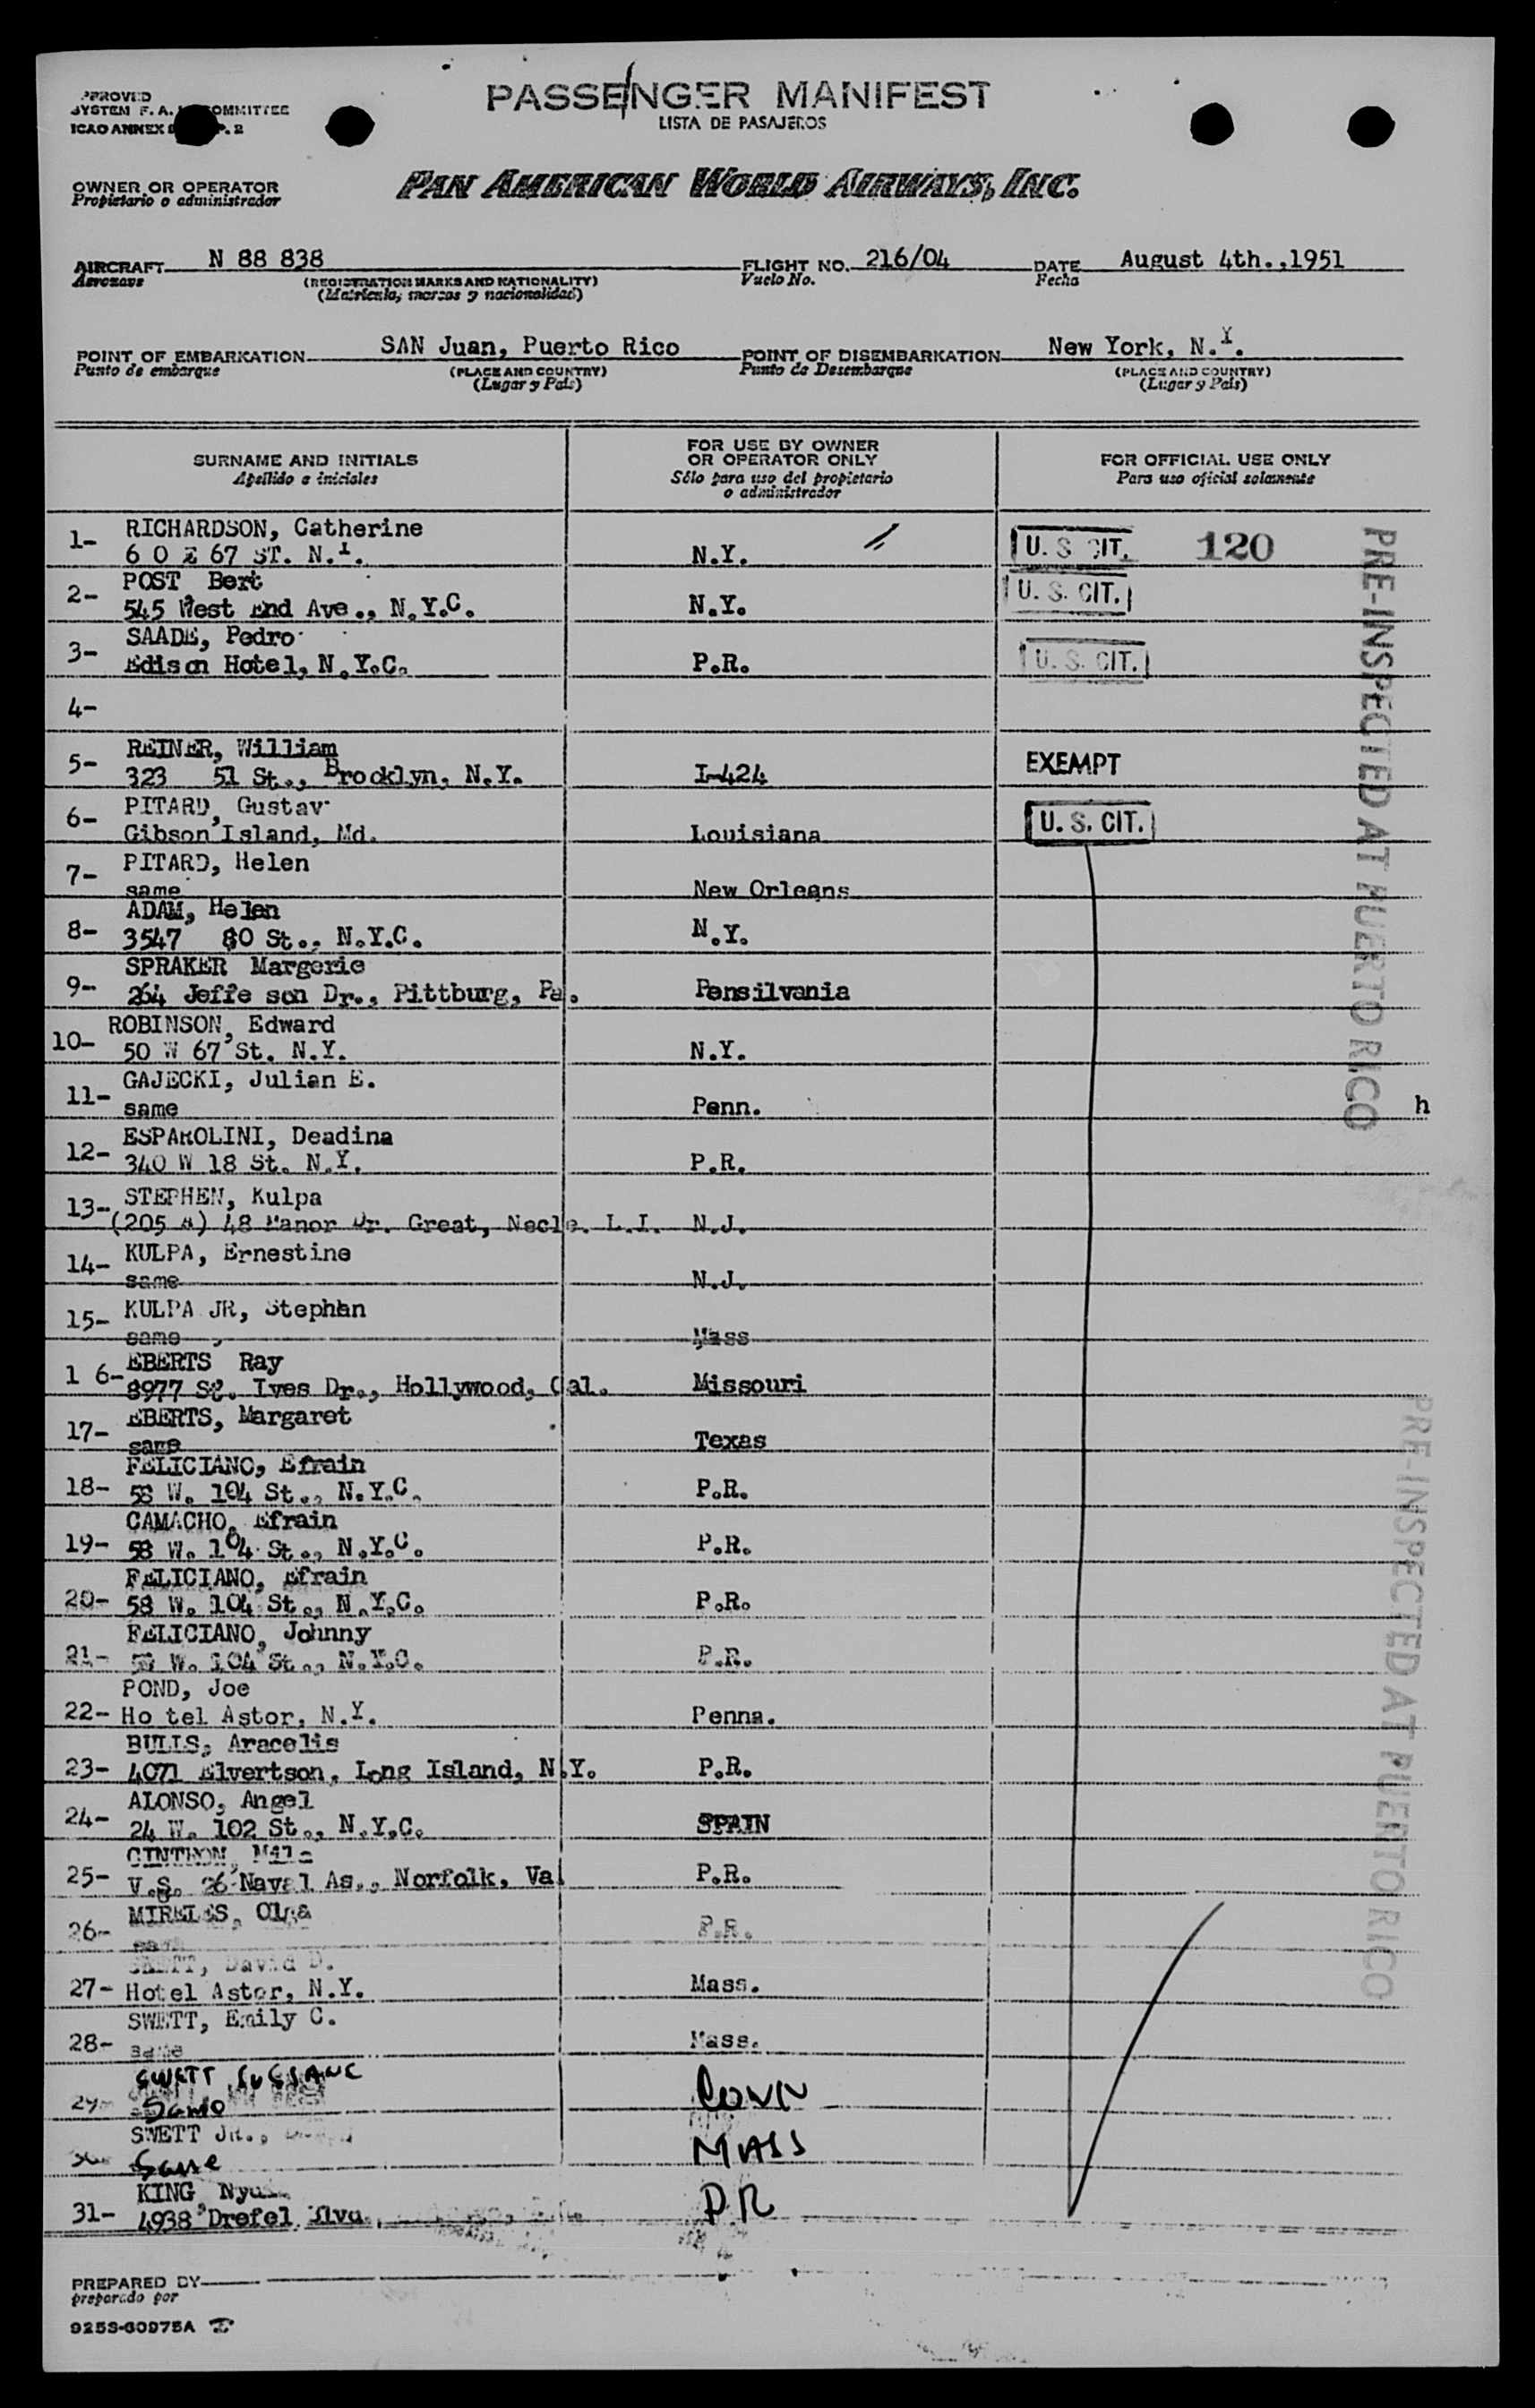 PASSENGER MANIFEST
LISTA DE PASAJEROS
OWNER OR OPERATOR
Propietario o administrador
PAN AMERICAN WORLD AIRWAYS, INC.
AIRCRAFT N 88 838 FLIGHT NO. 216/04 DATE August 4th.,1951
Aeronave (REGISTRATION MARKS AND NATIONALITY) Vuelo No. Fecha
(Matrícula, marcas y nacionalidad)
POINT OF EMBARKATION SAN Juan, Puerto Rico POINT OF DISEMBARKATION New York, N.Y.
Punto de embarque (PLACE AND COUNTRY) Punto de Desembarque (PLACE AND COUNTRY)
(Lugar y País) (Lugar y País)
SURNAME AND INITIALS
Apellido e iniciales
FOR USE BY OWNER
OR OPERATOR ONLY
Sólo para uso del propietario
o administrador
FOR OFFICIAL USE ONLY
Para uso oficial solamente
1- RICHARDSON, Catherine
6 0 E 67 ST. N.Y. N.Y. U. S. CIT. 120
2- POST Bert
545 West End Ave., N.Y.C. N.Y. U. S. CIT.
3- SAADE, Pedro
Edison Hotel, N.Y.C. P.R. U. S. CIT.
4-
5- REINER, William
323 51 St., Brocklyn, N.Y. I-424 EXEMPT
6- PITARD, Gustav
Gibson Island, Md. Louisiana U. S. CIT.
7- PITARD, Helen
same New Orleans
8- ADAM, Helen
3547 80 St., N.Y.C. N.Y.
9- SPRAKER Margerie
264 Jeffe son Dr., Pittburg, Pa. Pensilvania
10- ROBINSON, Edward
50 W 67 St. N.Y. N.Y.
11- GAJECKI, Julian E.
same Penn. h
12- ESPAROLINI, Deadina
340 W 18 St. N.Y. P.R.
13- STEPHEN, Kulpa
(205 ) 48 Manor Dr. Great, Necle. L.I. N.J.
14- KULPA, Ernestine
same N.J.
15- KULPA JR, Stephhn
same Mass
1 6- EBERTS Ray
8977 St. Ives Dr., Hollywood, Cal. Missouri
17- EBERTS, Margaret
same Texas
18- FELICIANO, Efrain
58 W. 104 St., N.Y.C. P.R.
19- CAMACHO, Efrain
58 W. 104 St., N.Y.C. P.R.
20- FELICIANO, Efrain
58 W. 104 St., N.Y.C. P.R.
21- FELICIANO, Johnny
58 W. 104 St., N.Y.C. P.R.
22- POND, Joe
Ho tel Astor, N.Y. Penna.
23- BULLS, Aracelis
4071 Elvertson, Long Island, N.Y. P.R.
24- ALONSO, Angel
24 W. 102 St., N.Y.C. SPAIN
25- CINTRON,
V.S. 26 Naval As., Norfolk, Va P.R.
26- MIRELES, Olga
same P.R.
27- SWETT, David D.
Hotel Astor, N.Y. Mass.
28- SWETT, Emily C.
same Mass.
29- SWETT SUSSANE
Same CONN
30- SWETT JR.,
Same MASS
31- KING
4938 Drefel PR
PRE-INSPECTED AT PUERTO RICO
PRE-INSPECTED AT PUERTO RICO
PREPARED BY
preparado por
9253-60975A